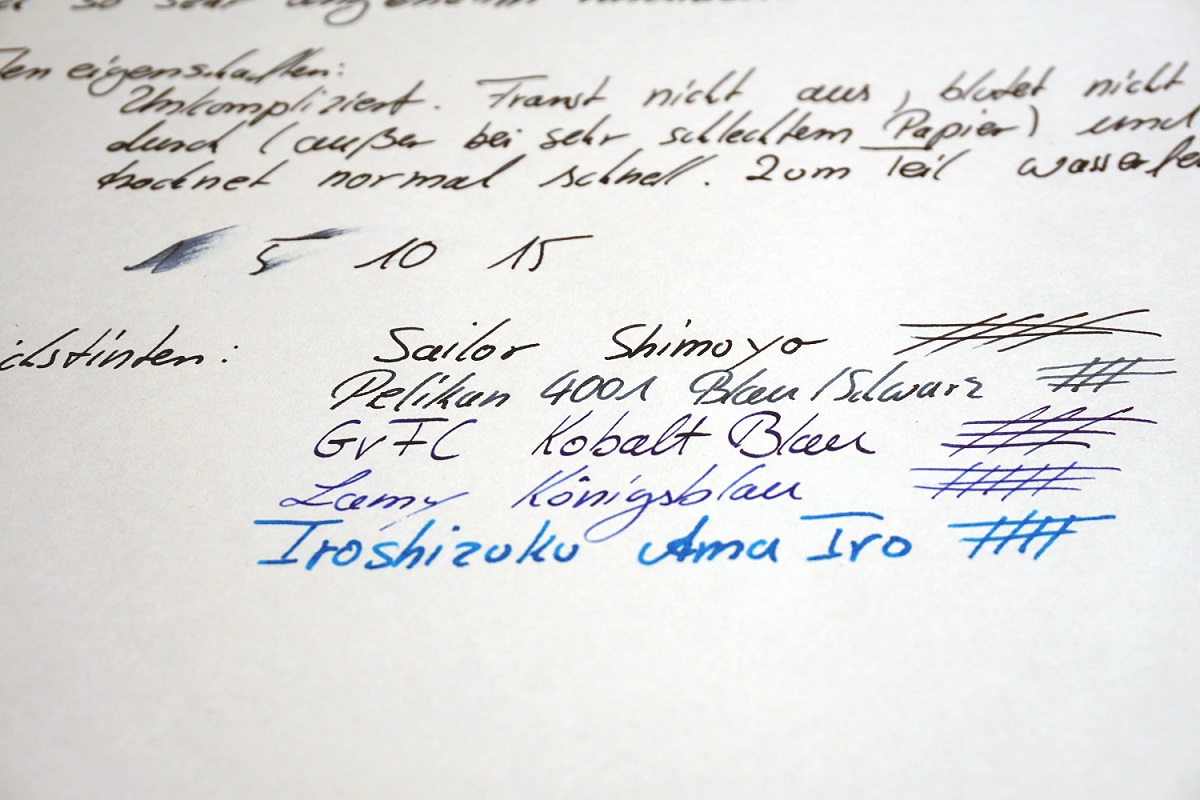 so sehr
eigenschaften:
Unkompliziert. Franst nicht aus, blutet nicht
durch (außer bei sehr schlechtem Papier) und
trocknet normal schnell. Zum Teil
1 5 10 15
Sailor Shimoyo
Pelikan 4001 Blau/Schwarz
GvFC Kobalt Blau
Lamy Königsblau
Iroshizuku Ama Iro